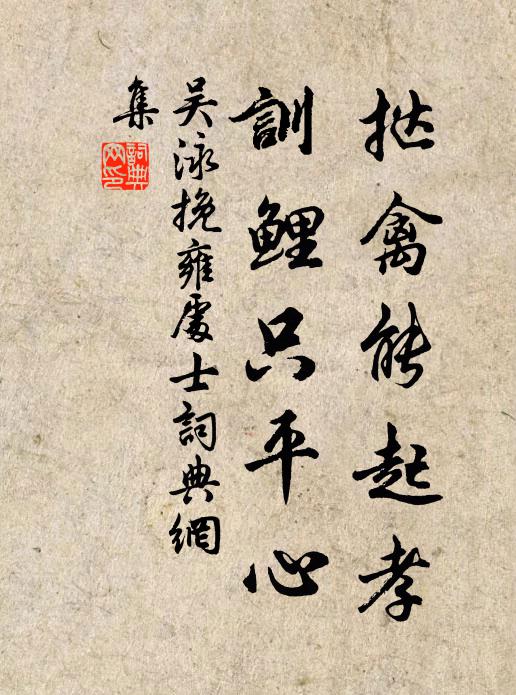 挞禽能起孝
訓鯉只平心
吴泳挽雍處士詞典網
集
詞典
网印